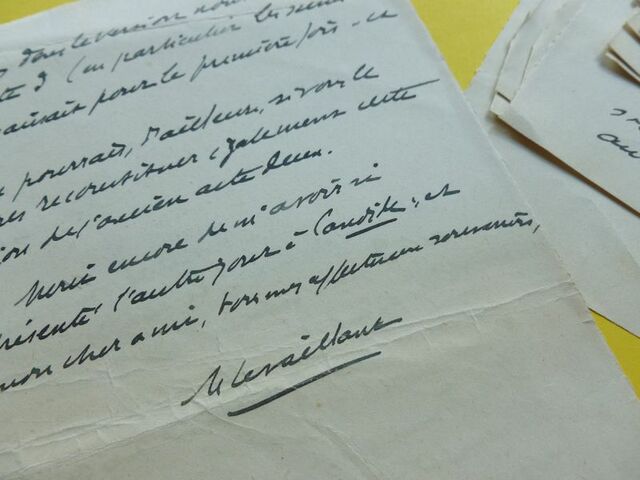 dans la version
(en particulier les
pour la première fois - ce
pourrais, d'ailleurs, si vous le
reconstituer également cette
de l'ancien acte deux.
Merci encore de m'avoir si
présenté l'autre jour à Candide, et
mon cher ami, tous mes affectueux souvenirs,
MLevaillant
au